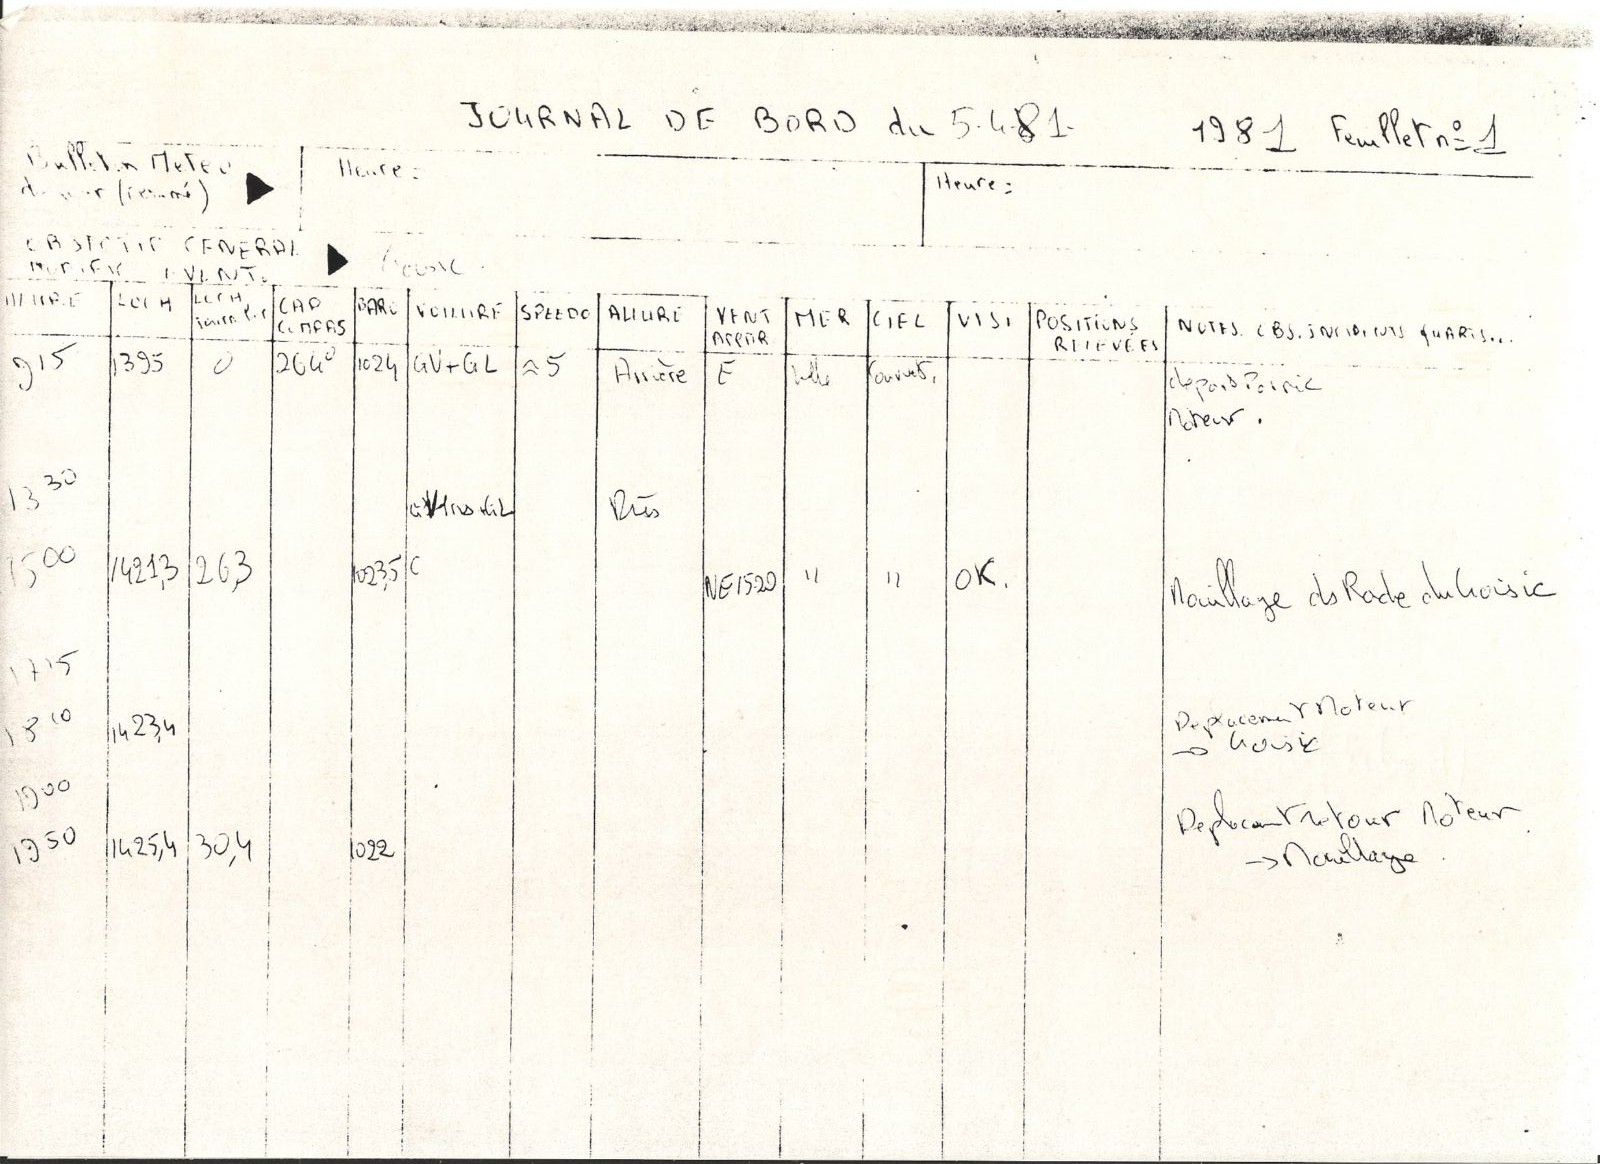 JOURNAL DE BORD du 5.4.81. 1981 Feuillet nº 1
Bulletin Meteo
(résumé)
Heure :
Heure :
OBJECTIF GENERAL
MODIFIC. EVENT.
HEURE LOCH LOCH journalier CAP COMPAS BARO VOILURE SPEEDO ALLURE VENT APPAR MER CIEL VISI POSITIONS RELEVÉES NOTES. OBS. INCIDENTS QUARTS...
9 15 1395 0 264° 1024 GV+GL ≈ 5 Arrière E belle couvert. depart Pornic
Moteur.
13 30 Près
15 00 1421,3 26,3 1023,5 NE 15-20 " " OK. Mouillage ds Rade du Croisic
17 15
18 10 1423,4 Deplacement Moteur
→ Croisic
19 00
19 50 1425,4 30,4 1022 Deplacemt retour Moteur
→ Mouillage.